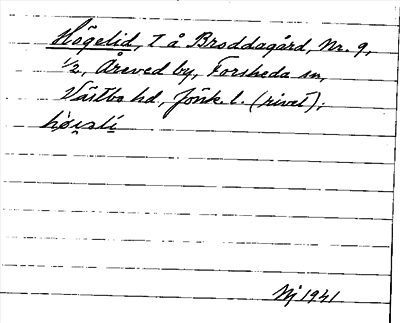 Högelid, T å Broddagård, Nr. 9,
1/2, Åreved by, Forsheda sn,
Västbo hd, Jönk. l. (rivet);
Nj 1941